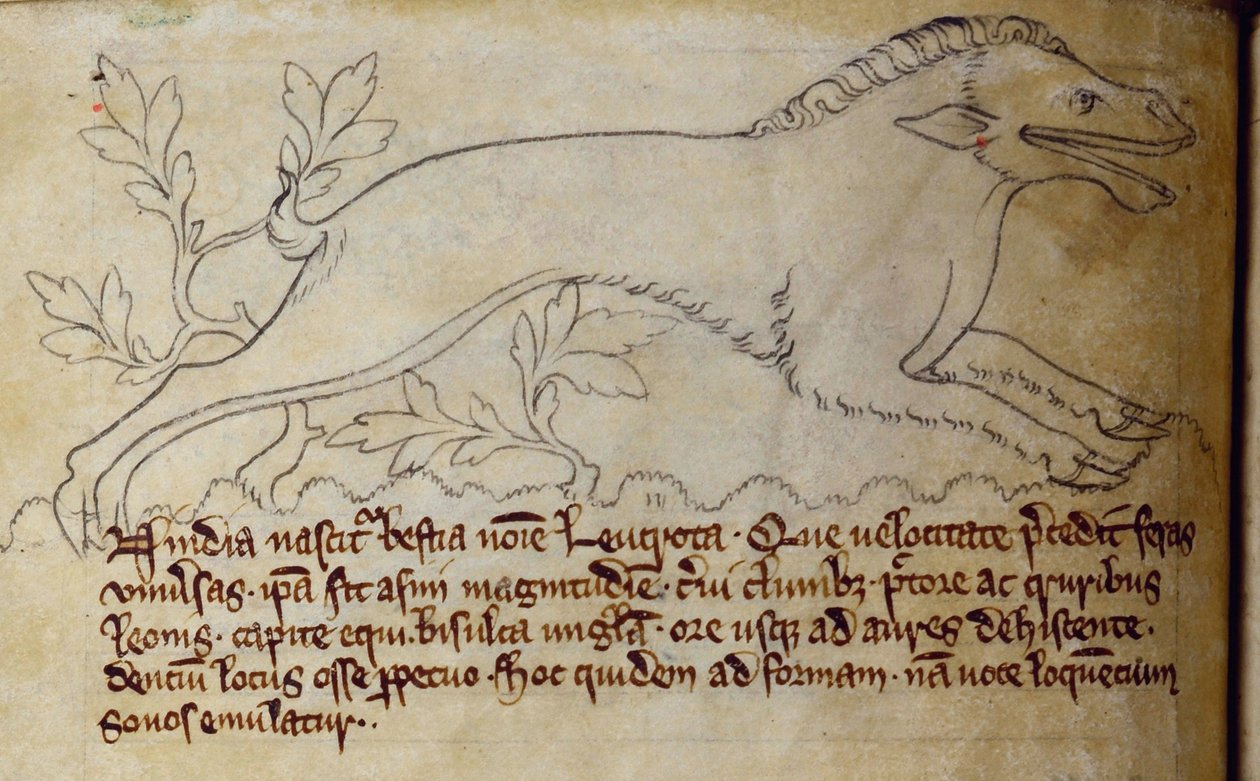 In india nascit᷑ bestia nōīe Leucrota · Que uelocitate p̄cedit feras
vniu̾sas · ipā fit asini magnitudīe · c̾ui clunibꝫ · pectore ac cruribus
leonis · capite equi · bisulca ungl̄a · ore usqꝫ ad aures dehiscente ·
dentiū locus osse ꝑpetuo · Hoc quidem ad formam · nā uoce loquētium
sonos emulatur ·